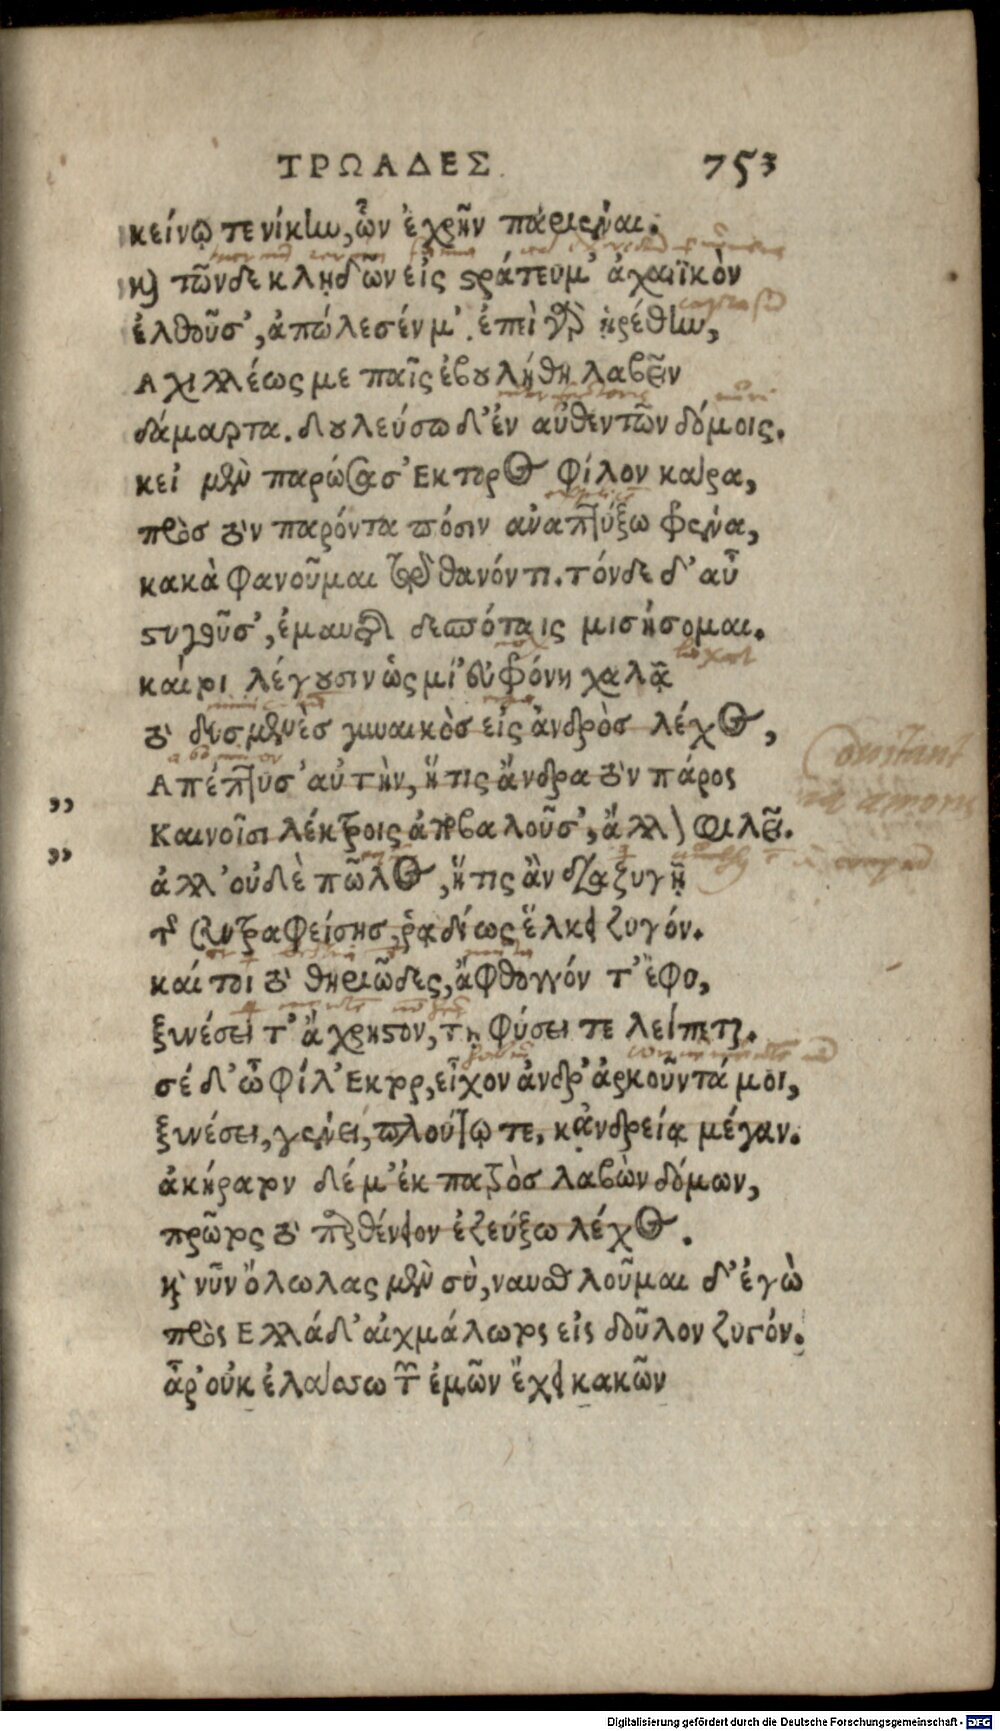 ΤΡΩΑΔΕΣ. 753
κείνῳ τε νίκην, ὧν ἐχρῆν παριέναι.
καὶ τῶνδε κληδὼν εἰς στράτευμ' ἀχαιϊκὸν
ἐλθοῦσ', ἀπώλεσέν μ'. ἐπεὶ γὰρ ᾑρέθην,
Αχιλλέως με παῖς ἐβουλήθη λαβεῖν
δάμαρτα. δουλεύσω δ' ἐν αὐθεντῶν δόμοις.
κεἰ μὲν παρώσασ' Εκτορος φίλον κάρα,
πρὸσ οὖν παρόντα πόσιν ἀναπτύξω φρένα,
κακὰ φανοῦμαι τῷ θανόντι. τόνδε δ' αὖ
στυγοῦσ', ἐμαυτῆ δεσπόταις μισήσομαι.
καίτοι λέγουσιν ὡς μί' εὐφρόνη χαλᾷ
οὐ δυσμενὲσ γυναικὸσ εἰς ἀνδρὸσ λέχος,
Απέπτυσ' αὐτὴν, ἥτις ἄνδρα οὖν πάρος
Καινοῖσι λέκτροις ἀποβαλοῦσ', ἄλλον φιλεῖ.
ἀλλ' οὐδὲ πῶλος, ἥτις ἂν διαζυγῇ
τῆς συντραφείσησ, ῥᾳδίως ἕλκει ζυγόν.
καίτοι οὐ θηριῶδες, ἄφθογγόν τ' ἔφυ,
ξυνέσει τ' ἄχρηστον, τῃ φύσει τε λείπεται.
σέ δ' ὦ φίλ' Εκτορ, εἶχον ἀνδρ' ἀρκοῦντά μοι,
ξυνέσει, γένει, πλούτῳ τε, κἀνδρείᾳ μέγαν.
ἀκήρατον δέ μ' ἐκ πατρὸσ λαβὼν δόμων,
πρῶτος οὐ παρθένειον ἐζεύξω λέχος.
καὶ νῦν ὄλωλας μὲν σὺ, ναυσθλοῦμαι δ' ἐγὼ
πρὸς Ελλάδ' αἰχμάλωτος εἰς δοῦλον ζυγόν.
ἆρ' οὐκ ἐλάσσω τῶν ἐμῶν ἔχει κακῶν
Constant
amoris
Digitalisierung gefördert durch die Deutsche Forschungsgemeinschaft - DFG